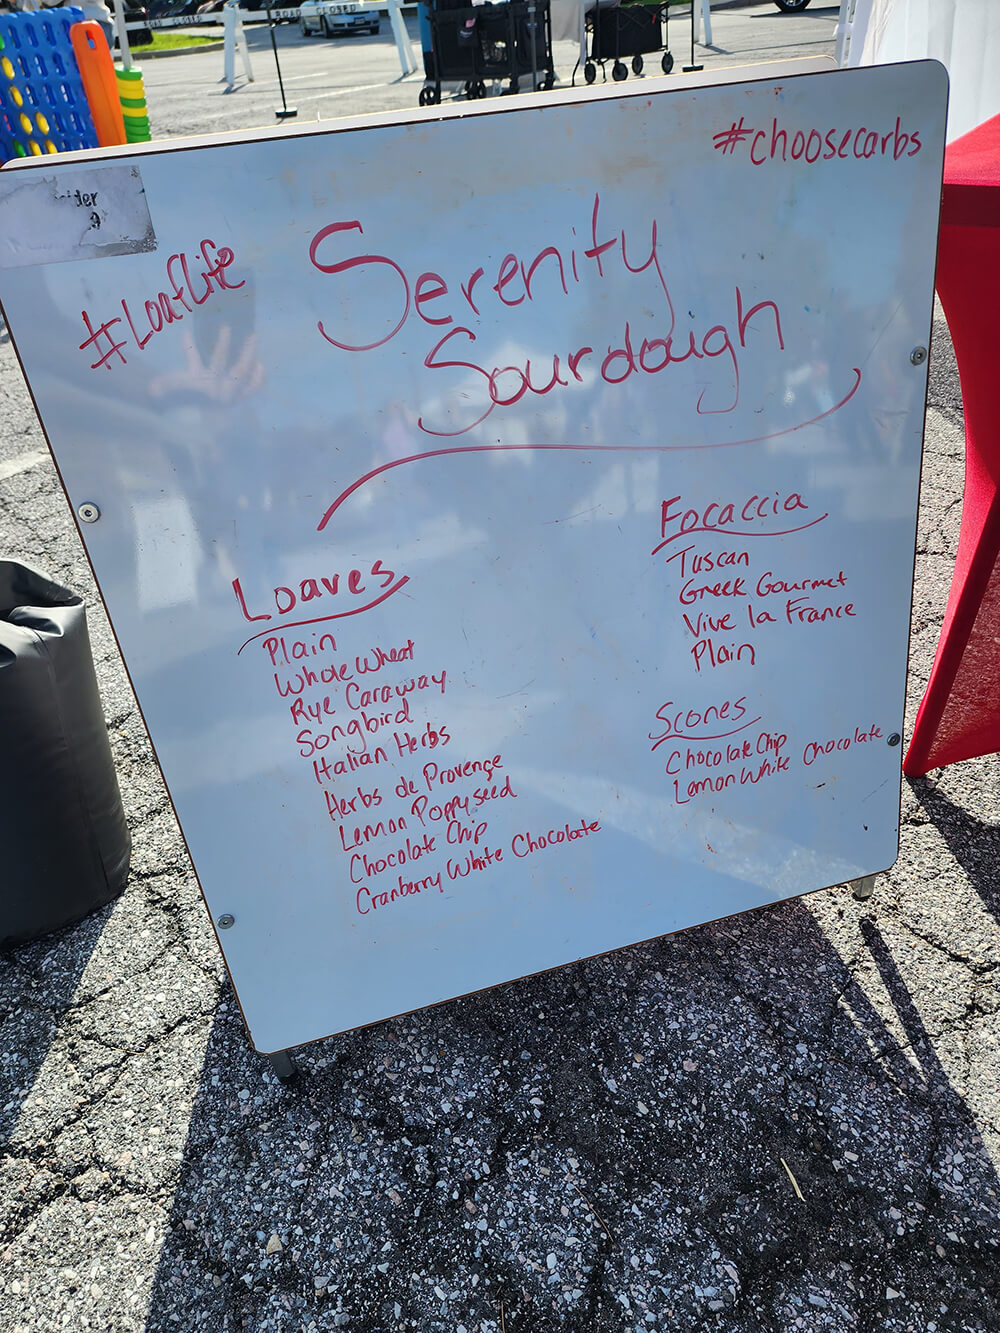 ROAD CLOSED
ROAD CLOSED
#choosecarbs
#LoafLife
Serenity
Sourdough
Loaves
Plain
Whole Wheat
Rye Caraway
Songbird
Italian Herbs
Herbs de Provence
Lemon Poppyseed
Chocolate Chip
Cranberry White Chocolate
Focaccia
Tuscan
Greek Gourmet
Vive la France
Plain
Scones
Chocolate Chip
Lemon White Chocolate